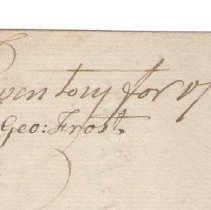 ventory for 17
Geo: Frost